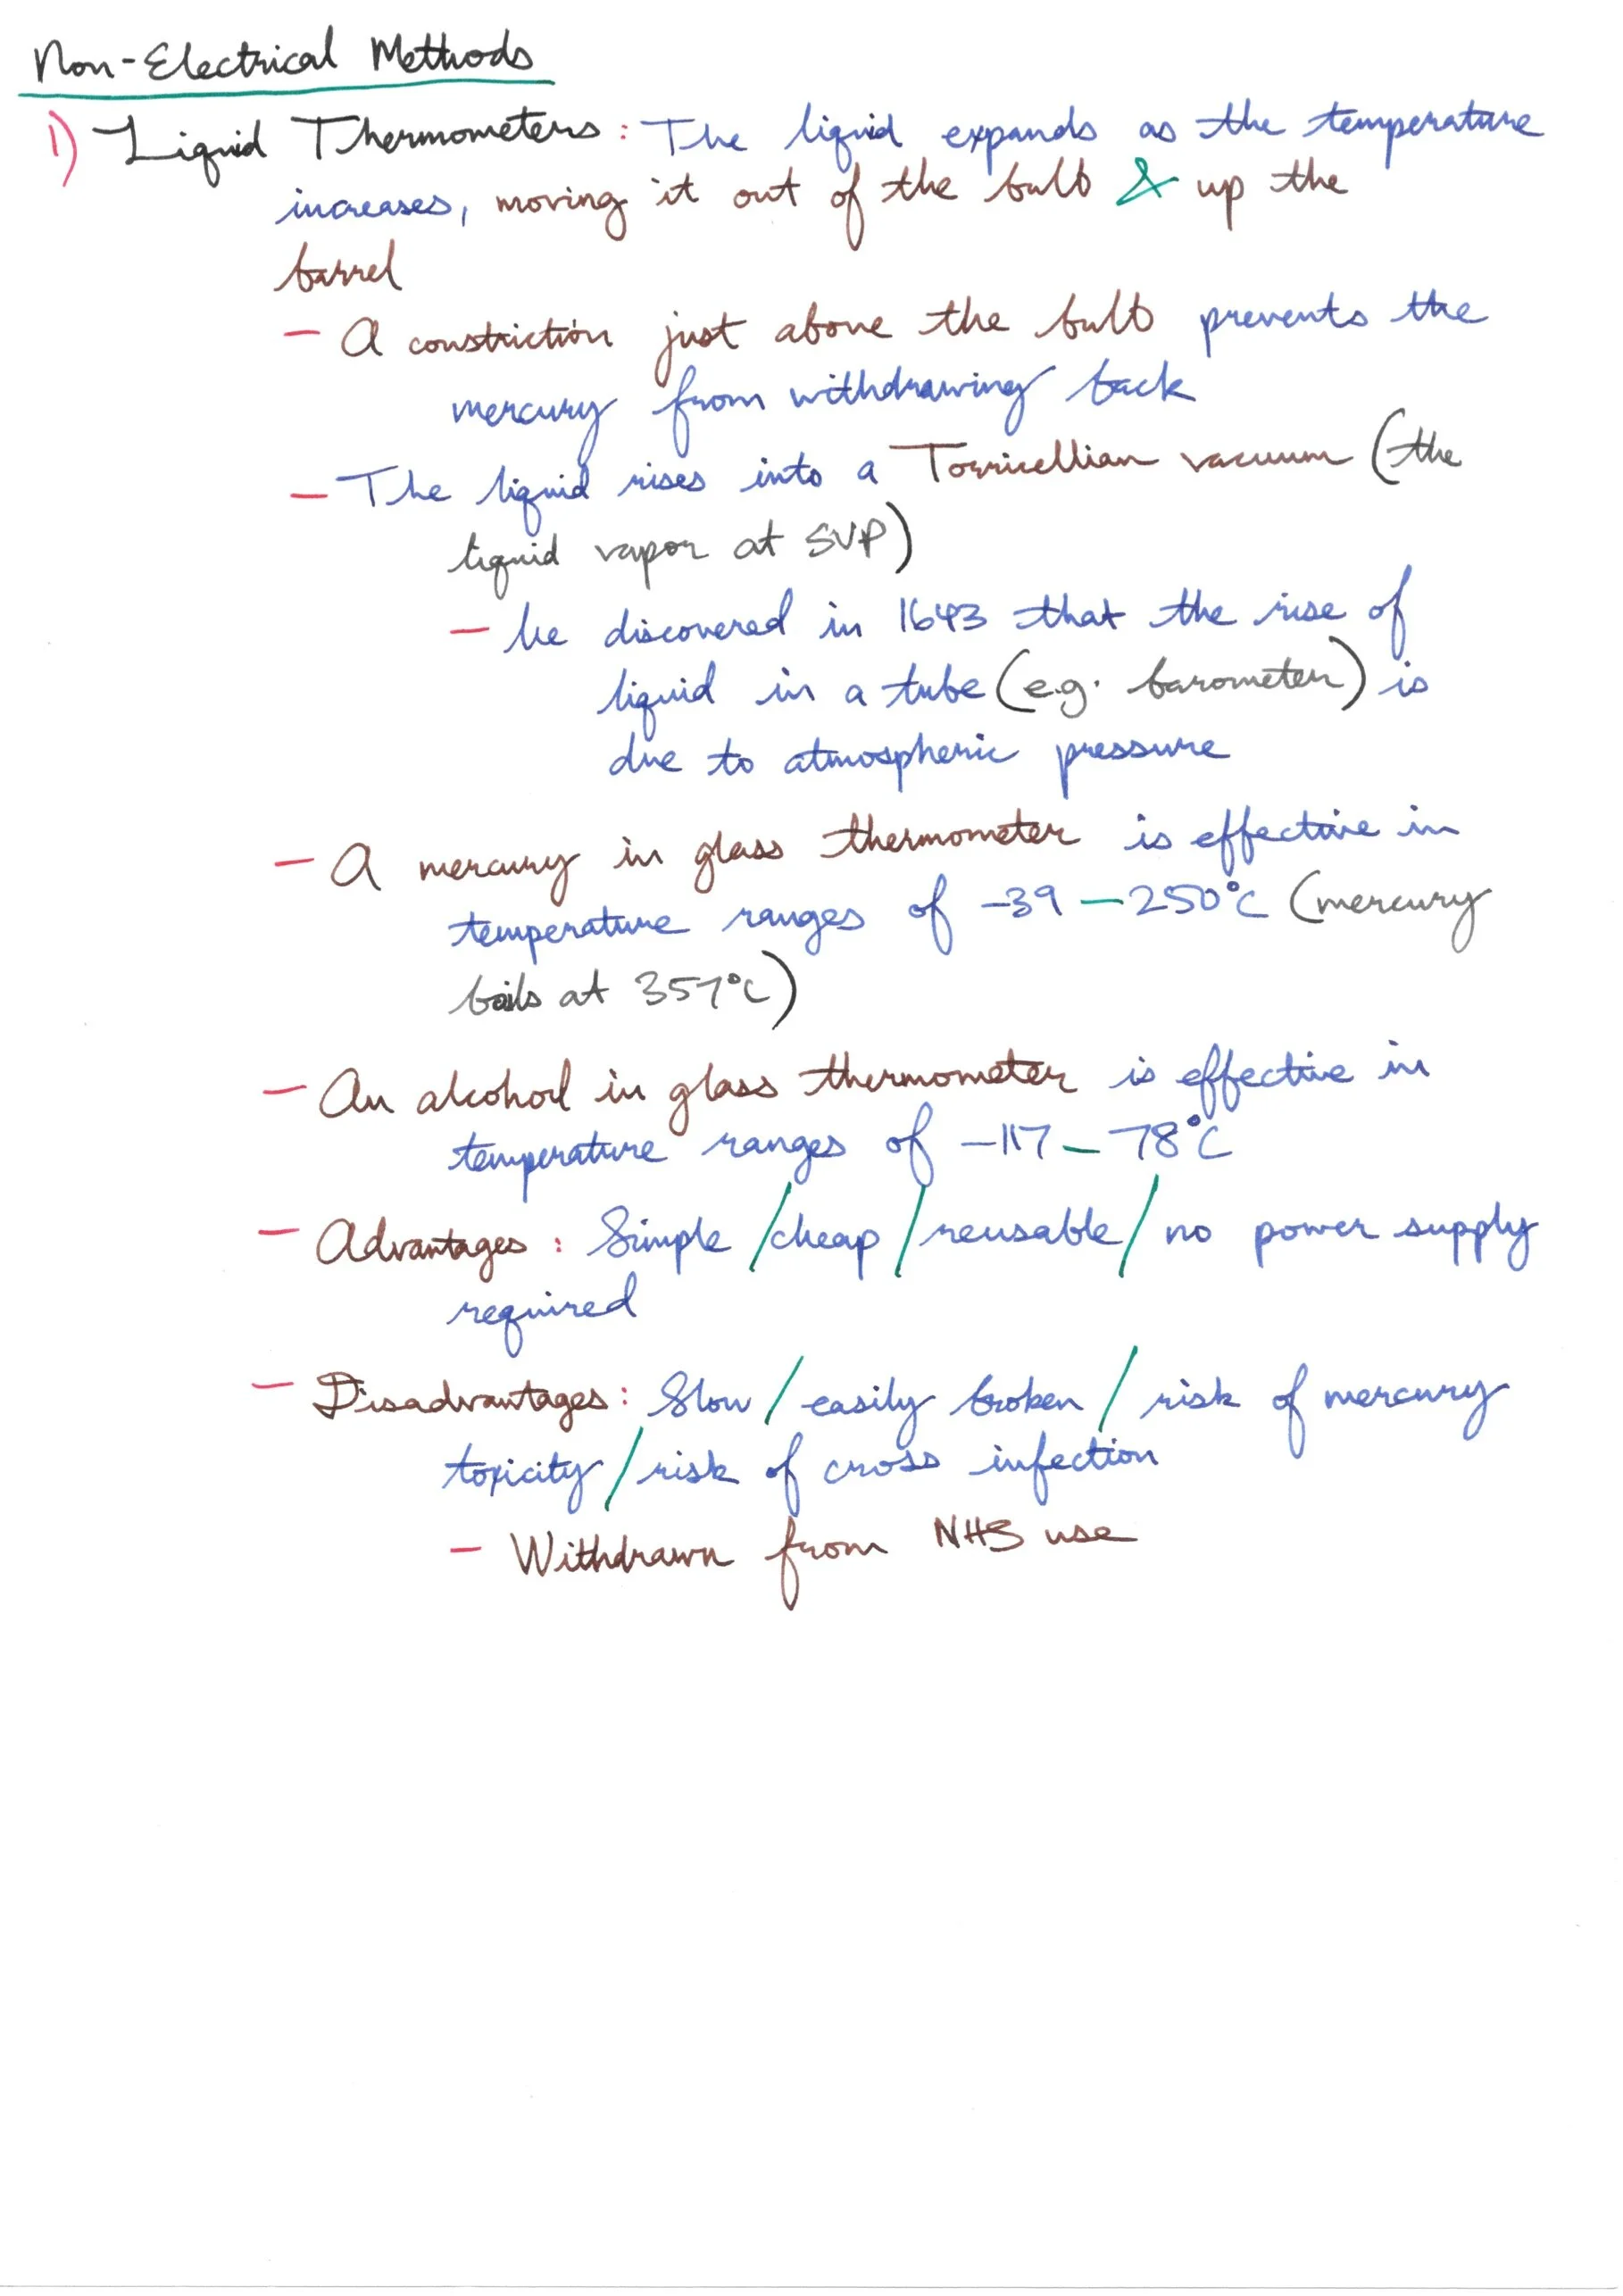 Non-Electrical Methods
1) Liquid Thermometers: The liquid expands as the temperature
increases, moving it out of the bulb & up the
barrel
- A constriction just above the bulb prevents the
mercury from withdrawing back
- The liquid rises into a Torricellian vacuum (the
liquid vapor at SVP)
- he discovered in 1643 that the rise of
liquid in a tube (e.g. barometer) is
due to atmospheric pressure
- A mercury in glass thermometer is effective in
temperature ranges of -39 - 250°C (mercury
boils at 357°C)
- An alcohol in glass thermometer is effective in
temperature ranges of -117 - 78°C
- Advantages: Simple / cheap / reusable / no power supply
required
- Disadvantages: Slow / easily broken / risk of mercury
toxicity / risk of cross infection
- Withdrawn from NHS use